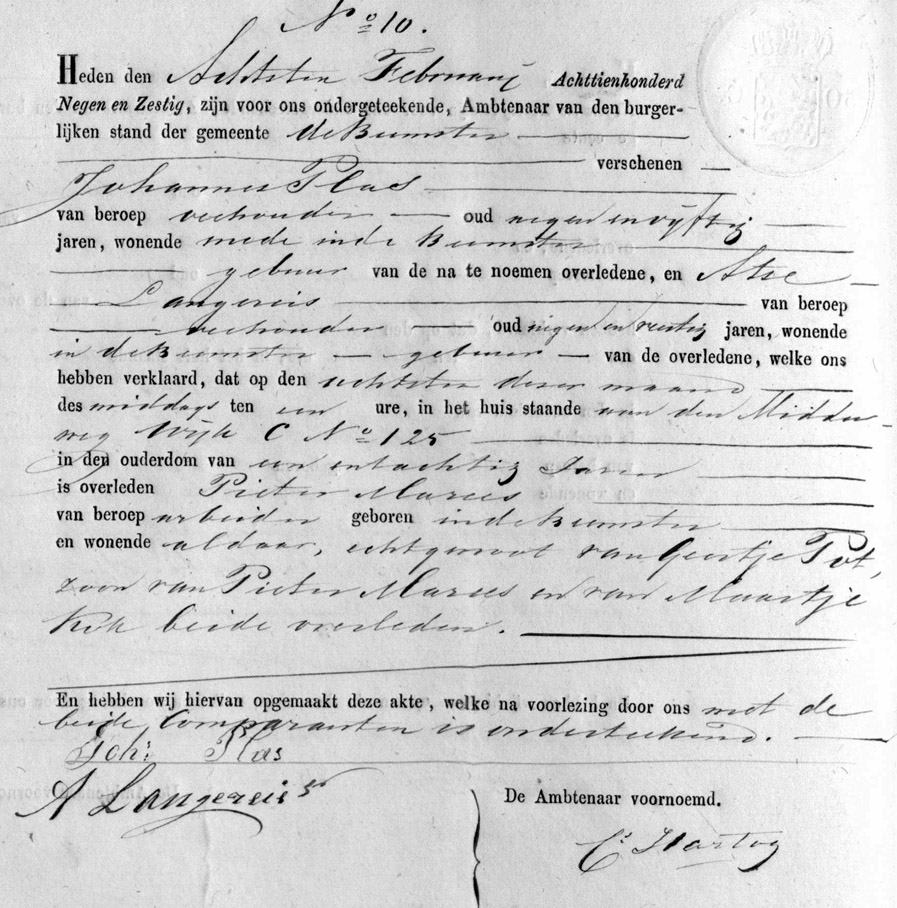 No 10.
Heden den Achtsten Februarij Achttienhonderd
Negen en Zestig, zijn voor ons ondergeteekende, Ambtenaar van den burger-
lijken stand der gemeente de Beemster
verschenen
Johannes Plas
van beroep veehouder oud negen en vijftig
jaren, wonende mede in de Beemster
gebuur van de na te noemen overledene, en
Langereis van beroep
veehouder oud negen en jaren, wonende
in de Beemster gebuur van de overledene, welke ons
hebben verklaard, dat op den achtsten dezer maand
des middags ten een ure, in het huis staande aan den Midden
weg Wijk C No 125
in den ouderdom van een en tachtig Jaren
is overleden Pieter Marees
van beroep arbeider geboren in de Beemster
en wonende aldaar, echtgenoot van Geertje Pot,
zoon van Pieter Marees en van Maartje
Kok beide overleden.
En hebben wij hiervan opgemaakt deze akte, welke na voorlezing door ons met de
beide Comparanten is onderteekend.
Joh: Plas
A Langereis
De Ambtenaar voornoemd.
C: Hartog